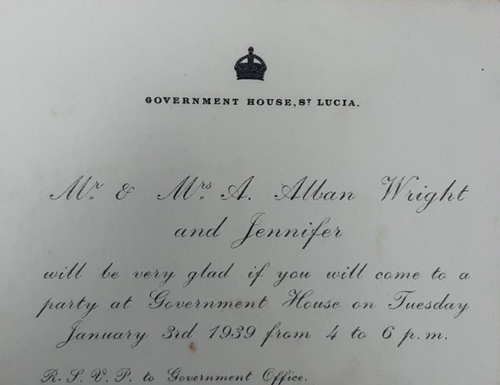 GOVERNMENT HOUSE, ST LUCIA.
Mr. & Mrs. A. Alban Wright
and Jennifer
will be very glad if you will come to a
party at Government House on Tuesday
January 3rd 1939 from 4 to 6 p.m.
R.S.V.P. to Government Office.